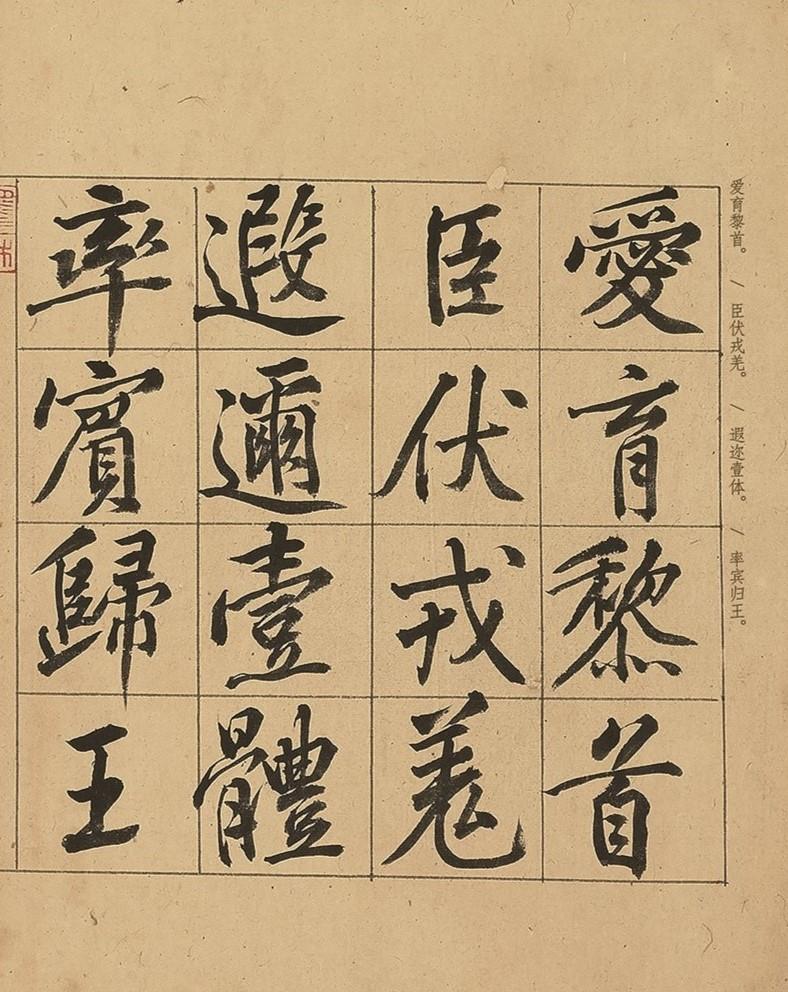 爱育黎首。 / 臣伏戎羌。 / 遐迩壹体。 / 率宾归王。
愛育黎首
臣伏戎羌
遐邇壹體
率賓歸王